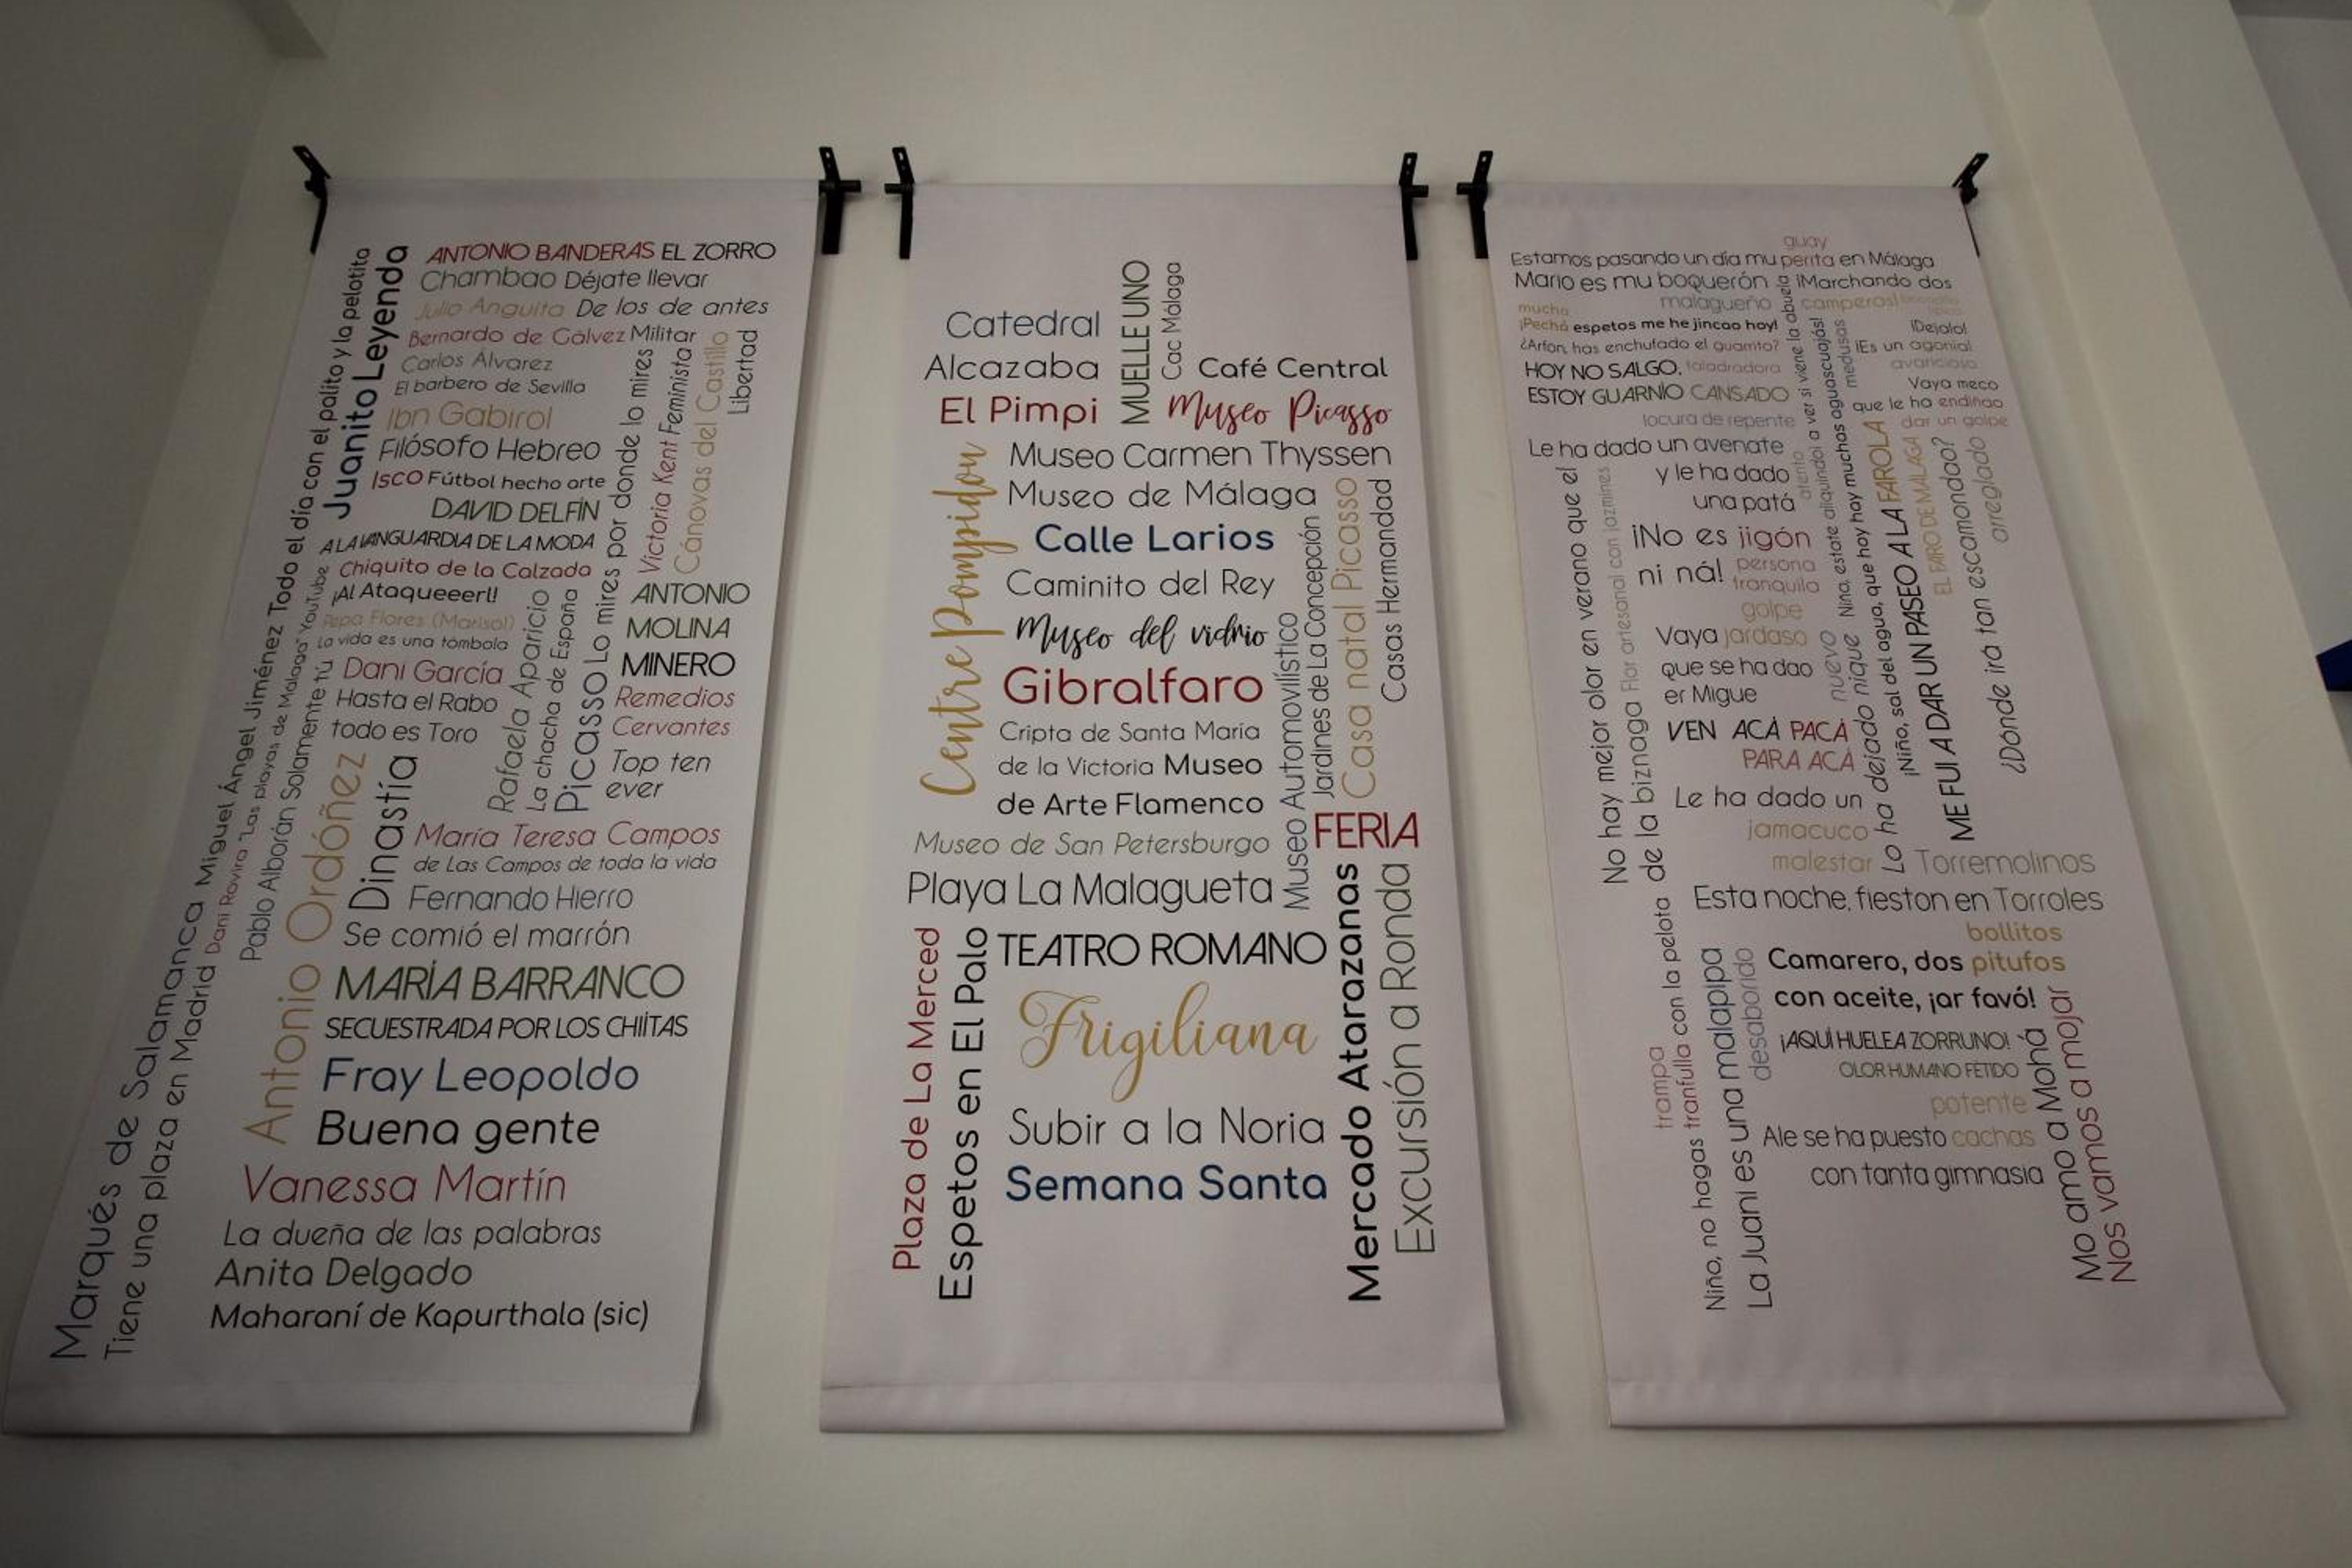 ANTONIO BANDERAS EL ZORRO
Chambao Déjate llevar
Julio Anguita De los de antes
Bernardo de Gálvez Militar
Carlos Álvarez
El barbero de Sevilla
Ibn Gabirol
Filósofo Hebreo
Isco Fútbol hecho arte
DAVID DELFÍN
A LA VANGUARDIA DE LA MODA
Chiquito de la Calzada
¡Al Ataqueeerl!
Pepa Flores (Marisol)
La vida es una tómbola
Dani García
Hasta el Rabo
todo es Toro
Juanito Leyenda
Miguel Ángel Jiménez Todo el día con el palito y la pelotito
Dani Rovira "Las playas de Málaga" YouTube
Pablo Alborán Solamente tú
Marqués de Salamanca
Tiene una plaza en Madrid
Antonio Ordóñez
Dinastía
Rafaela Aparicio
La chacha de España
Picasso Lo mires por donde lo mires
Victoria Kent Feminista
Cánovas del Castillo
Libertad
ANTONIO
MOLINA
MINERO
Remedios
Cervantes
Top ten
ever
María Teresa Campos
de Las Campos de toda la vida
Fernando Hierro
Se comió el marrón
MARÍA BARRANCO
SECUESTRADA POR LOS CHIÍTAS
Fray Leopoldo
Buena gente
Vanessa Martín
La dueña de las palabras
Anita Delgado
Maharaní de Kapurthala (sic)
Catedral
Alcazaba
El Pimpi
MUELLE UNO
Cac Málaga
Café Central
Museo Picasso
Centre Pompidou
Museo Carmen Thyssen
Museo de Málaga
Calle Larios
Caminito del Rey
Museo del vidrio
Gibralfaro
Cripta de Santa María
de la Victoria Museo
de Arte Flamenco
Museo de San Petersburgo
Playa La Malagueta
Museo Automovilístico
Jardines de La Concepción
Casa natal Picasso
Casas Hermandad
FERIA
Plaza de La Merced
Espetos en El Palo
TEATRO ROMANO
Frigiliana
Subir a la Noria
Semana Santa
Mercado Atarazanas
Excursión a Ronda
guay
Estamos pasando un día mu perita en Málaga
Mario es mu boquerón
malagueño
¡Marchando dos
camperos!
mucho
¡Pechá espetos me he jincao hoy!
¿Arfon, has enchufado el guarrito?
taladradora
HOY NO SALGO,
ESTOY GUARNÍO CANSADO
locura de repente
Le ha dado un avenate
y le ha dado
una patá
¡No es jigón
ni ná! persona
tranquila
golpe
Vaya jardaso
que se ha dao
er Migue
VEN ACÁ PACÁ
PARA ACÁ
Le ha dado un
jamacuco
malestar
Nina, estate aliquindoi a ver si viene la abuela
atento
¡Niño, sal del agua, que hoy hay muchas aguascuajás!
medusas
¡Dejalo!
¡Es un agonia!
avaricioso
Vaya meco
que le ha endiñao
dar un golpe
nuevo
Lo ha dejado nique
ME FUI A DAR UN PASEO A LA FAROLA
EL FARO DE MÁLAGA
¿Dónde irá tan escamondao?
arreglado
No hay mejor olor en verano que el
de la biznaga Flor artesanal con jazmines
Torremolinos
Esta noche, fieston en Torroles
bollitos
Camarero, dos pitufos
con aceite, ¡ar favó!
¡AQUÍ HUELE A ZORRUNO!
OLOR HUMANO FÉTIDO
potente
Ale se ha puesto cachas
con tanta gimnasia
trampa
Niño, no hagas tranfulla con la pelota
La Juani es una malapipa
desaborido
Mo amo a Mohá
Nos vamos a mojar